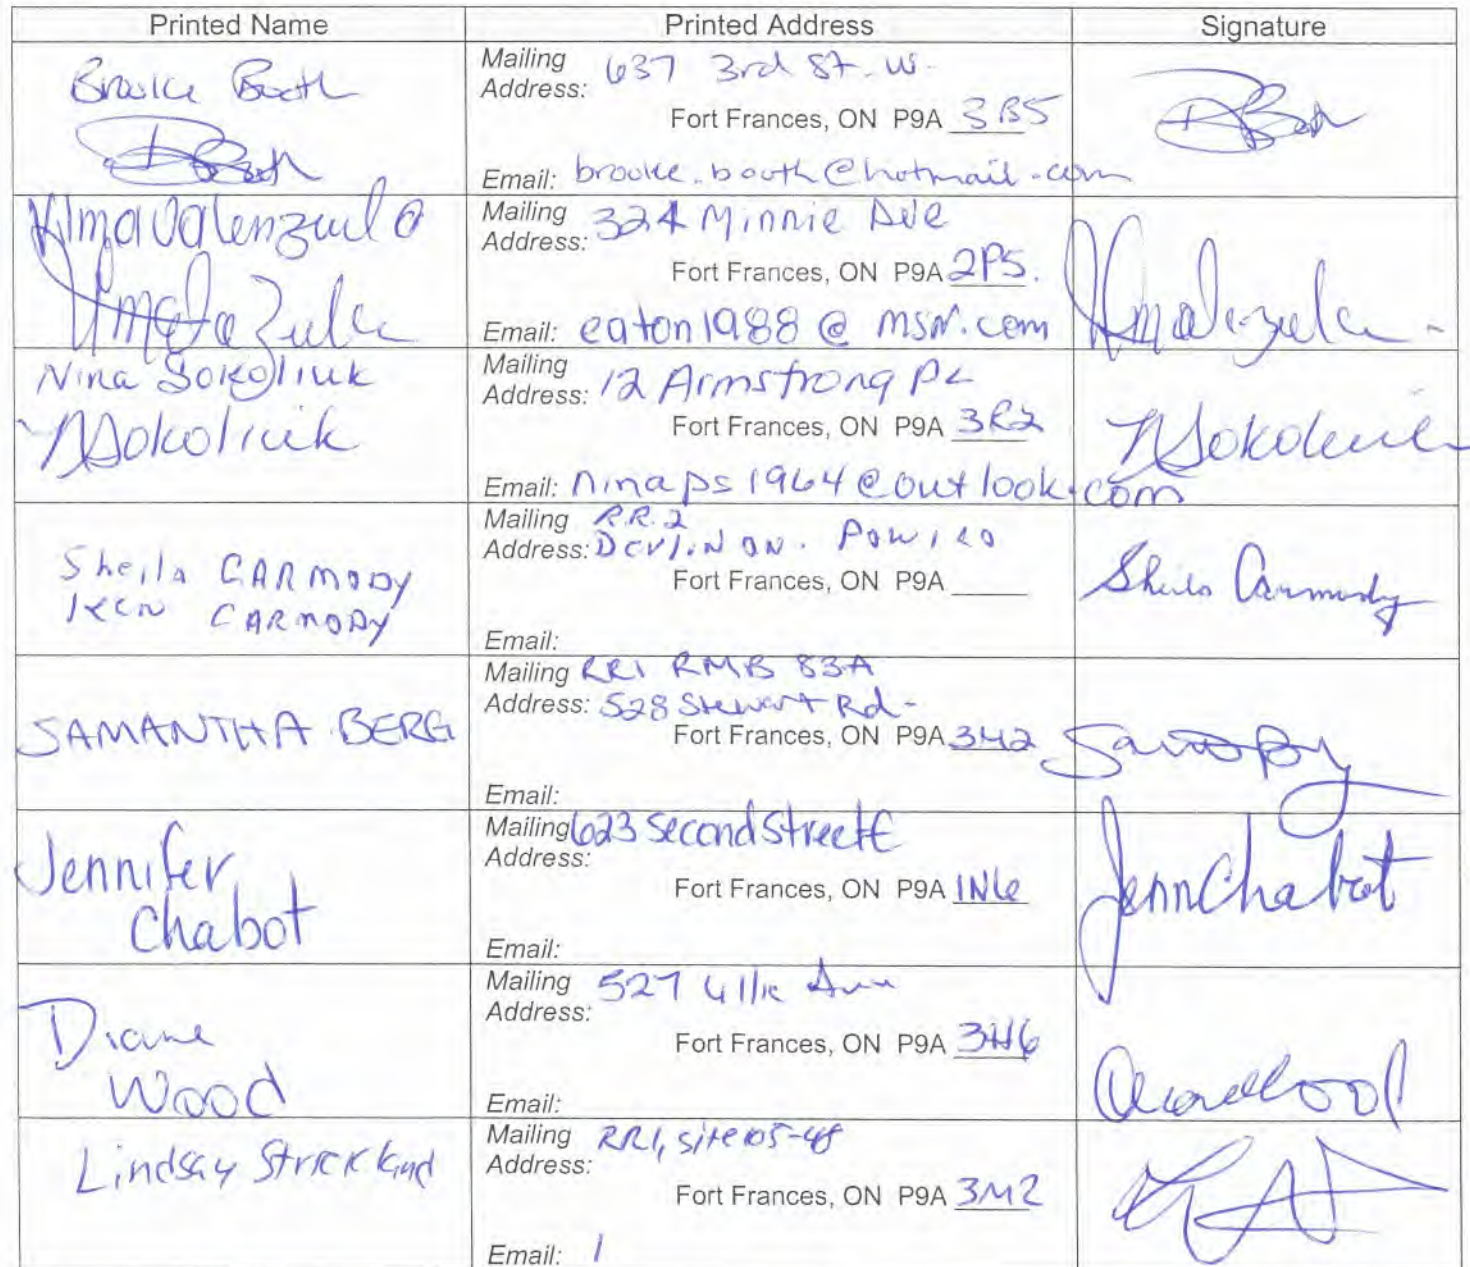 Printed Name Printed Address Signature
Brooke Booth
Mailing Address: 637 3rd St. W.
Fort Frances, ON P9A 3B5
Email: brooke.booth@hotmail.com
Alma Valenzuela
Mailing Address: 324 Minnie Ave
Fort Frances, ON P9A 2P5.
Email: eaton1988@msn.com
Nina Sokoliuk
NSokoliuk
Mailing Address: 12 Armstrong PL
Fort Frances, ON P9A 3R2
Email: ninaps1964@outlook.com
NSokoliuk
Sheila CARMODY
Ken CARMODY
Mailing R.R.2
Address: Devlin ON. POW 1C0
Fort Frances, ON P9A
Email:
Sheila Carmody
SAMANTHA BERG
Mailing RR1 RMB 83A
Address: 528 Stewart Rd-
Fort Frances, ON P9A 3M2
Email:
Jennifer
Chabot
Mailing Address: 623 Second Street E
Fort Frances, ON P9A 1N6
Email:
Jenn Chabot
Diane
Wood
Mailing Address: 527
Fort Frances, ON P9A 3H6
Email:
Lindsay Strickland
Mailing Address: RR1, site 105-48
Fort Frances, ON P9A 3M2
Email: /